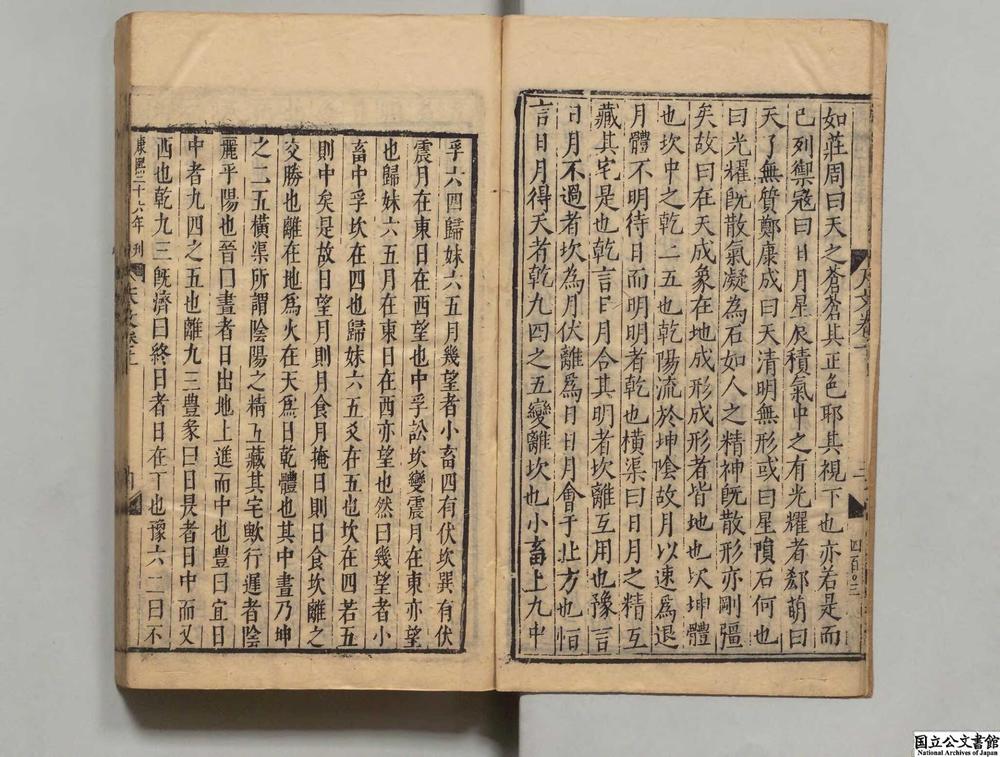 如莊周曰天之蒼蒼其正色耶其視下也亦若是而
已列禦寇曰日月星辰積氣中之有光耀者郄萌曰
天了無質鄭康成曰天清明無形或曰星隕石何也
曰光耀旣散氣凝為石如人之精神旣散形亦剛彊
矣故曰在天成象在地成形成形者皆地也坎坤體
也坎中之乾二五也乾陽流於坤陰故月以速為退
月體不明待日而明明者乾也橫渠曰日月之精互
藏其宅是也乾言日月合其明者坎離互用也豫言
日月不過者坎為月伏離爲日日月會于北方也恒
言日月得天者乾九四之五變離坎也小畜上九中
四百〇三
孚六四歸妹六五月幾望者小畜四有伏坎巽有伏
震月在東日在西望也中孚訟坎變震月在東亦望
也歸妹六五月在東日在西亦望也然曰幾望者小
畜中孚坎在四也歸妹六五爻在五也坎在四若五
則中矣是故日望月則月食月掩日則日食坎離之
交勝也離在地爲火在天爲日乾體也其中畫乃坤
之二五橫渠所謂陰陽之精互藏其宅歟行遲者陰
麗乎陽也晉曰晝者日出地上進而中也豐曰宜日
中者九四之五也離九三豊彖曰日昃者日中而又
西也乾九三旣濟曰終日者日在下也豫六二曰不
康熙三十六年刊
国立公文書館
National Archives of Japan